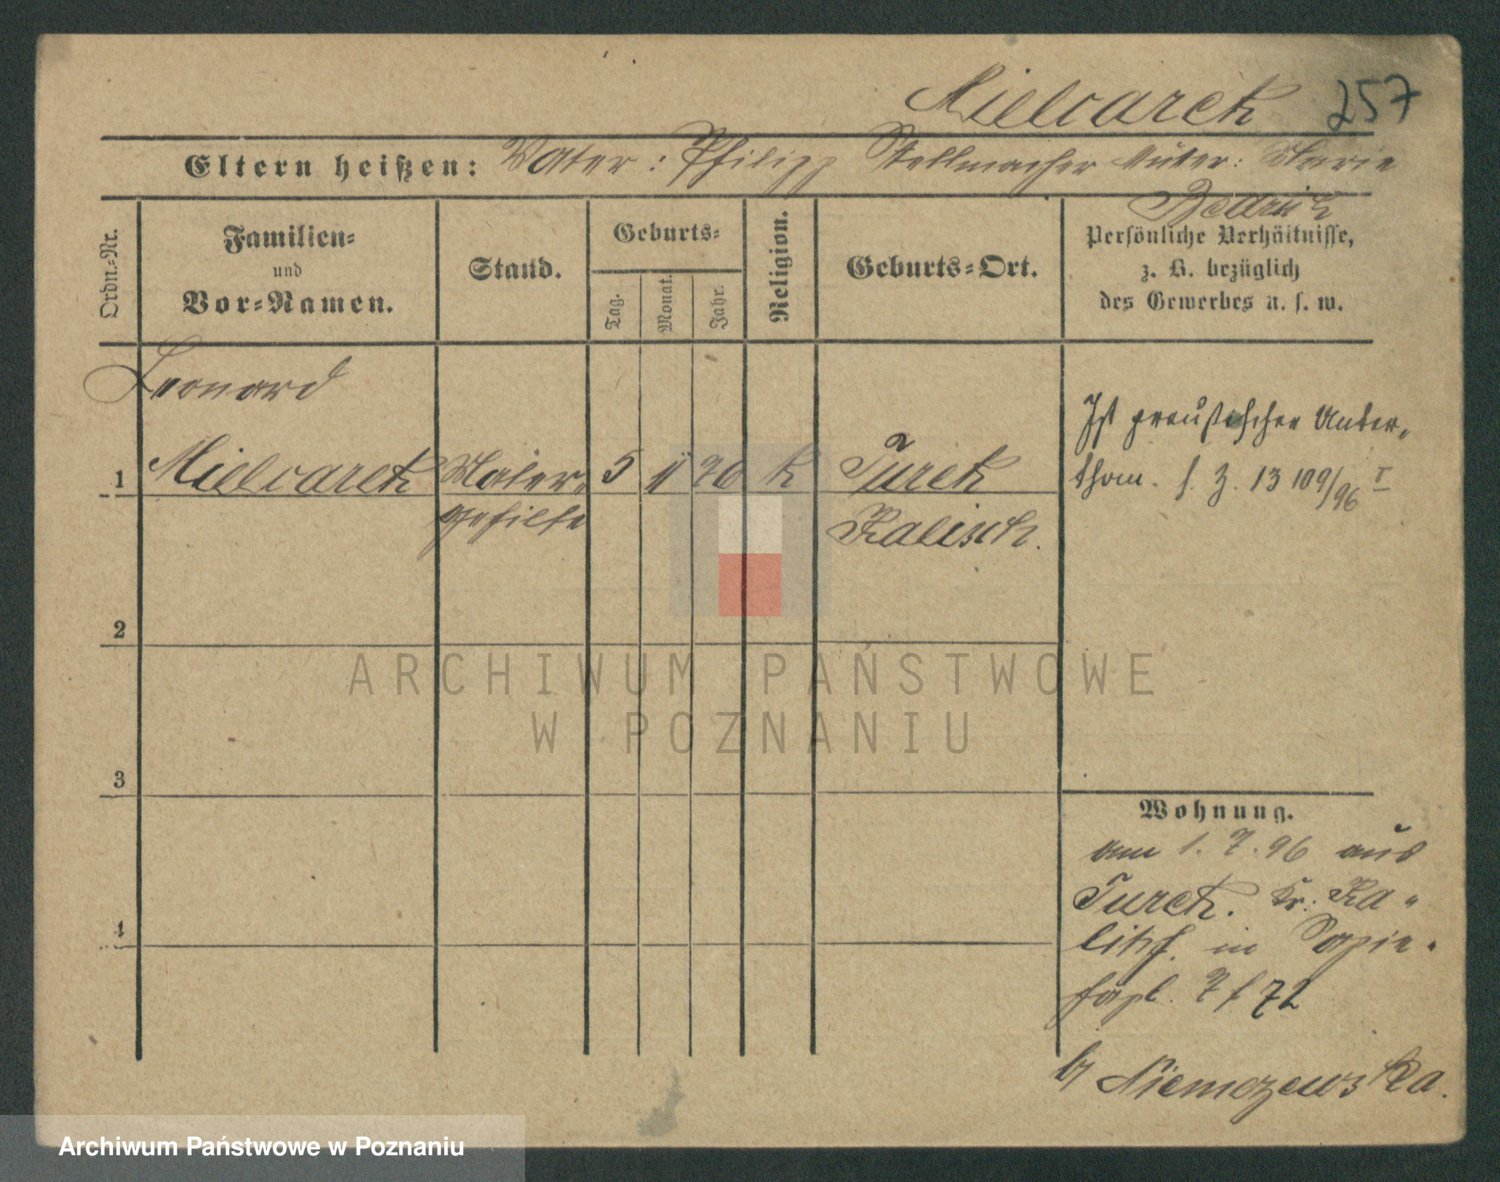 Mielcarek 257
Eltern heißen: Vater: Philipp Stellmacher Mutter: Marie
Bednik
Ordn.-Nr.
Familien-
und
Vor-Namen.
Stand.
Geburts-
Tag.
Monat.
Jahr.
Religion.
Geburts-Ort.
Persönliche Verhältnisse,
z. B. bezüglich
des Gewerbes u. s. w.
Leonard
1 Mielcarek Maler- 5 11 76 k Turek
gehilfe Kalisch.
Ist preußischer Unter-
than. s. Z. 13 109/96 I
2
3
4
Wohnung.
am 1. 7. 96 aus
Turek. Kr. Ka-
lisch. in Sapie-
hapl. 7 f 72
b/ Niemczewska.
ARCHIWUM PAŃSTWOWE
W POZNANIU
Archiwum Państwowe w Poznaniu